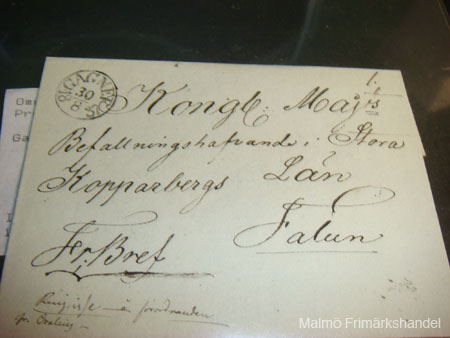 GAGNEF
30
8
1.
Kongl: Maj:ts
Befallningshafvande i Stora
Kopparbergs Län
Falun
Fr. Bref
Malmö Frimärkshandel